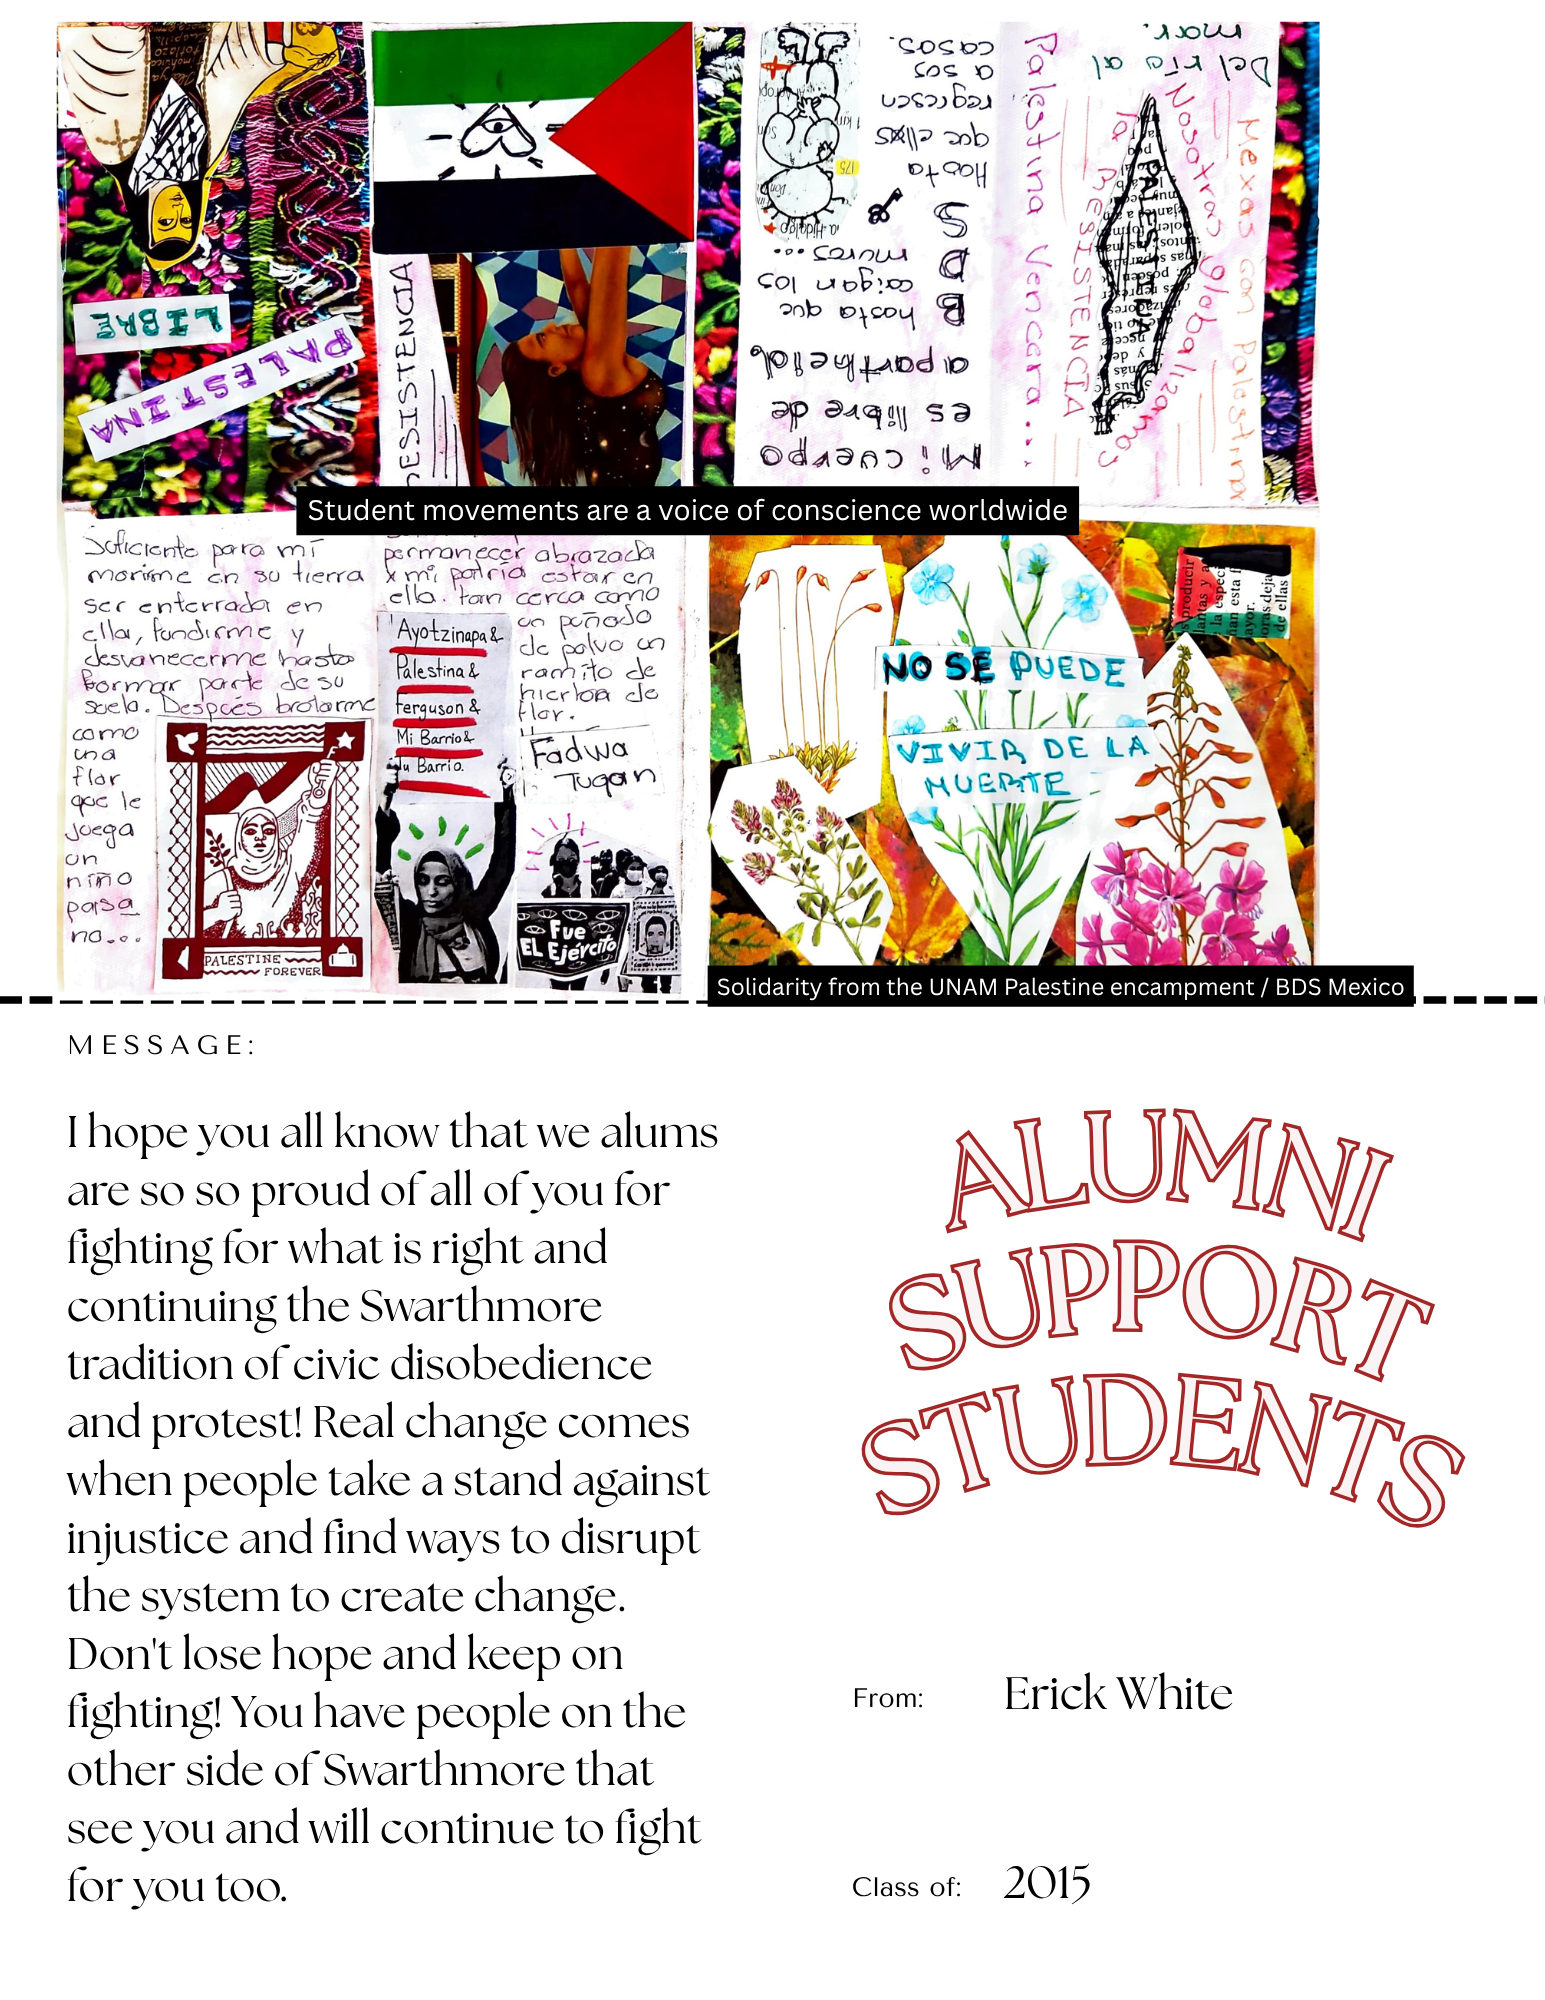 LIBRE
PALESTINA
RESISTENCIA
Mi cuerpo
es libre de
apartheid
hasta que
caigan los
muros...
B
D
S
Hasta
que ellxs
regresen
a sus
casas.
Palestina Vencera...
la RESISTENCIA
Nosotras globalizamos
Mexas con Palestina
Del río al
mar.
PALESTINA
Student movements are a voice of conscience worldwide
Suficiente para mí
morirme en su tierra
ser enterrada en
ella, fundirme y
desvanecerme hasta
formar parte de su
suelo. Después brotarme
como
una
flor
que le
juega
un
niño
paisa
no...
PALESTINE
FOREVER
permanecer abrazada
x mi patria estar en
ella. tan cerca como
un puñado
de polvo un
ramito de
hierba de
flor.
Fadwa
Tuqan
Ayotzinapa &
Palestina &
Ferguson &
Mi Barrio &
Tu Barrio.
Fue
EL Ejército
NO SE PUEDE
VIVIR DE LA
MUERTE
Solidarity from the UNAM Palestine encampment / BDS Mexico
MESSAGE:
I hope you all know that we alums
are so so proud of all of you for
fighting for what is right and
continuing the Swarthmore
tradition of civic disobedience
and protest! Real change comes
when people take a stand against
injustice and find ways to disrupt
the system to create change.
Don't lose hope and keep on
fighting! You have people on the
other side of Swarthmore that
see you and will continue to fight
for you too.
ALUMNI
SUPPORT
STUDENTS
From: Erick White
Class of: 2015